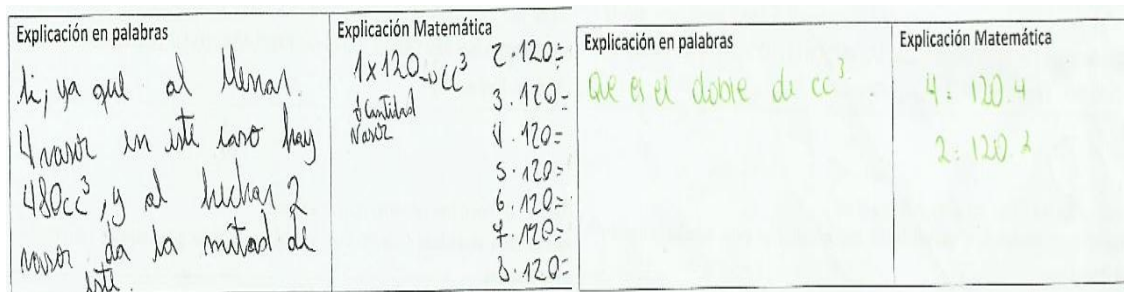 Explicación en palabras
Si, ya que al llenar
4 vasos en este caso hay
480cc³, y al hechar 2
vasos da la mitad de
este.
Explicación Matemática
1x120→cc³
cantidad
vasos
2·120=
3·120=
4·120=
5·120=
6·120=
7·120=
8·120=
Explicación en palabras
Que es el doble de cc³.
Explicación Matemática
4: 120.4
2: 120.2